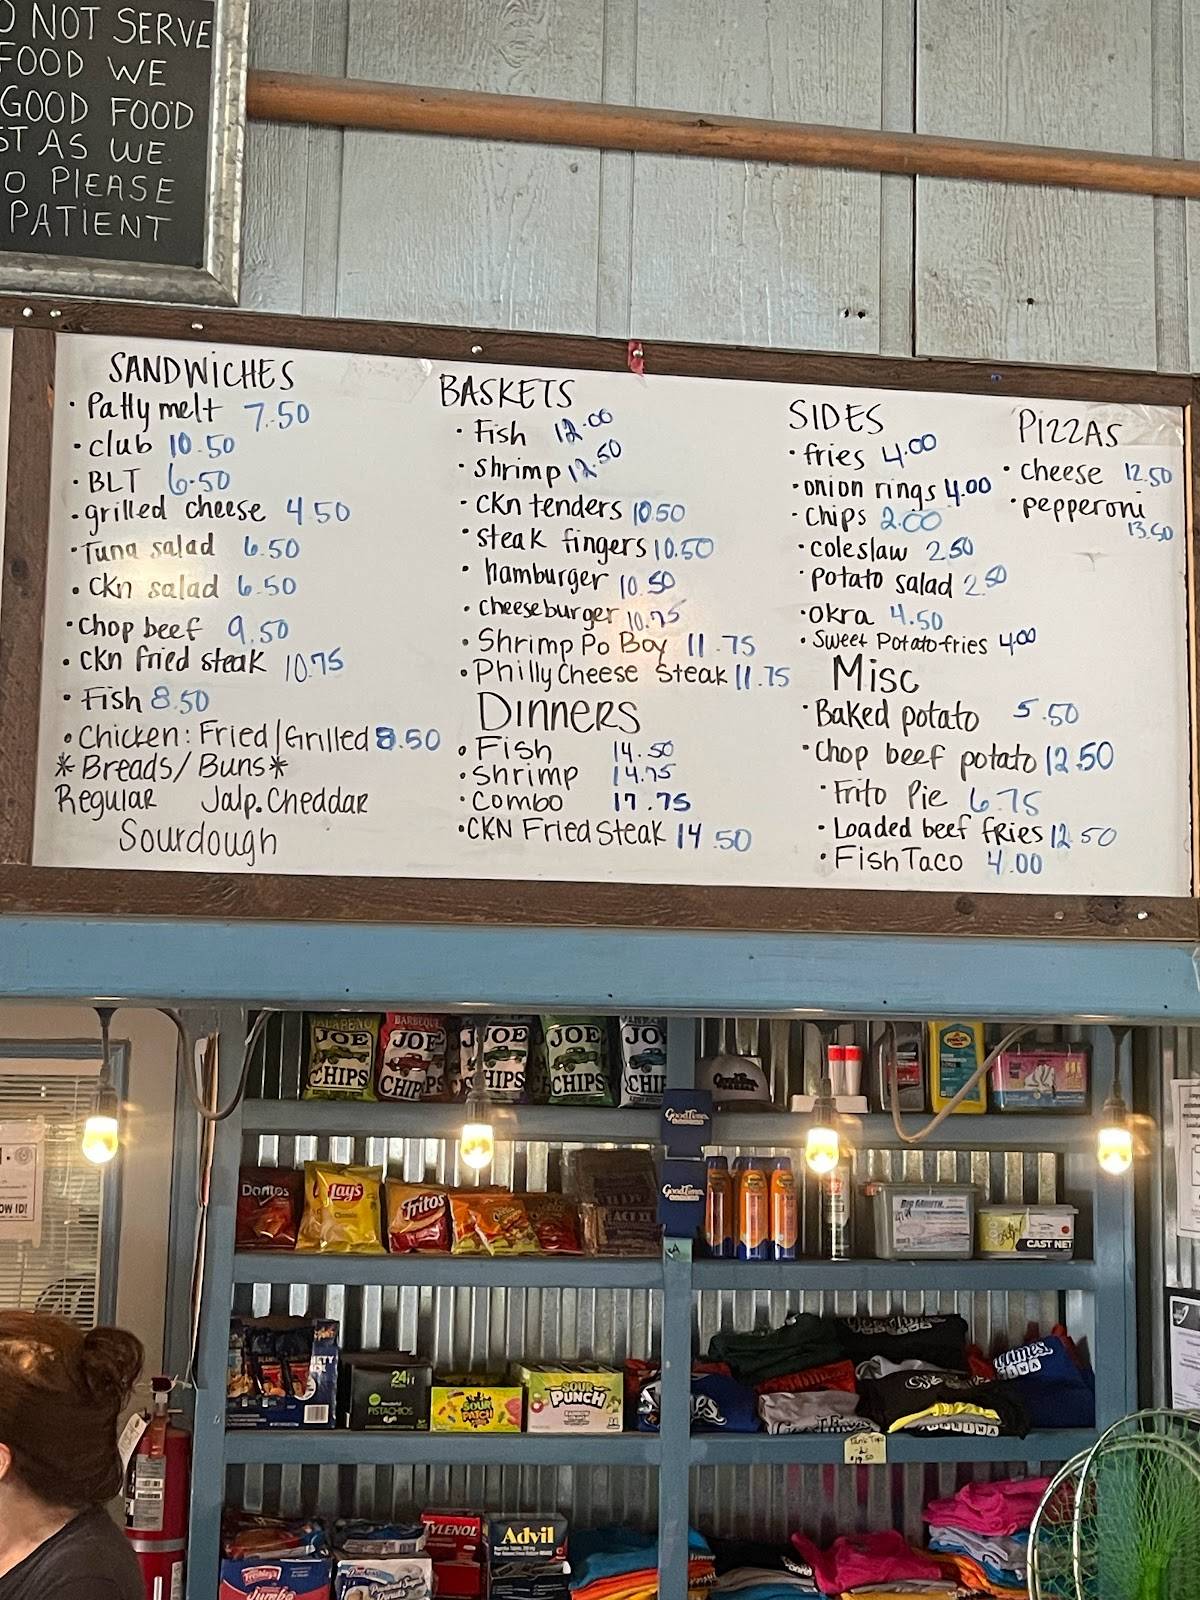 O NOT SERVE
FOOD WE
GOOD FOOD
ST AS WE
O PLEASE
PATIENT
SANDWICHES
• Patty melt 7.50
• club 10.50
• BLT 6.50
• grilled cheese 4.50
• Tuna salad 6.50
• Ckn salad 6.50
• Chop beef 9.50
• CKn fried steak 10.75
• Fish 8.50
• Chicken: Fried/Grilled 8.50
*Breads/Buns*
Regular Jalp.Cheddar
Sourdough
BASKETS
• Fish 12.00
• shrimp 12.50
• CKn tenders 10.50
• steak fingers 10.50
• hamburger 10.50
• cheeseburger 10.75
• Shrimp Po Boy 11.75
• Philly Cheese Steak 11.75
DINNERS
• Fish 14.50
• Shrimp 14.75
• Combo 17.75
• CKN Fried Steak 14.50
SIDES
• fries 4.00
• onion rings 4.00
• Chips 2.00
• coleslaw 2.50
• Potato salad 2.50
• Okra 4.50
• Sweet Potato fries 4.00
PIZZAS
• cheese 12.50
• pepperoni
13.50
Misc
• Baked potato 5.50
• Chop beef potato 12.50
• Frito Pie 6.75
• Loaded beef fries 12.50
• Fish Taco 4.00
JALAPENO
JOE
CHIPS
BARBECUE
JOE
CHIPS
JOE
CHIPS
JOE
CHIPS
JO
CHI
GoodTimes
GoodTimes
Doritos
Lay's
Classic
Fritos
BIG MOUTH
CAST NET
OW ID!
24
PISTACHIOS
SOUR
PATCH
SOUR
PUNCH
TYLENOL
Advil
Jumbo